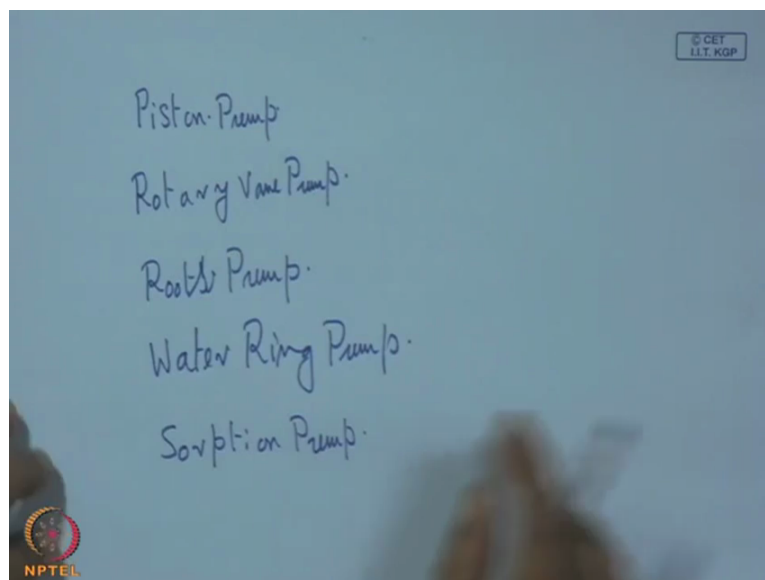 © CET
I.I.T. KGP
Piston Pump
Rotary Vane Pump.
Roots Pump.
Water Ring Pump.
Sorption Pump.
NPTEL